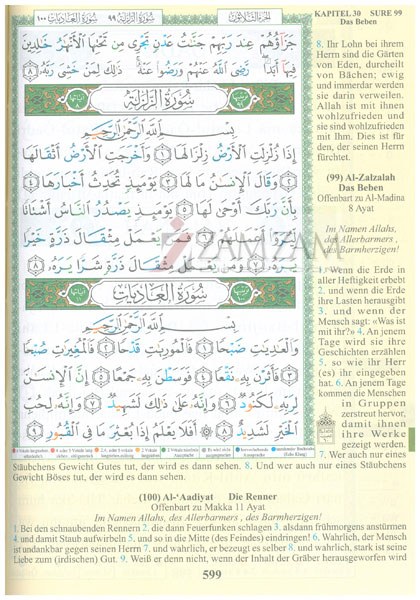 الجزء الثلاثون سورة الزلزلة ٩٩ سورة العاديات ١٠٠
جَزَآؤُهُمْ عِندَ رَبِّهِمْ جَنَّٰتُ عَدْنٍ تَجْرِى مِن تَحْتِهَا ٱلْأَنْهَٰرُ خَٰلِدِينَ
فِيهَآ أَبَدًا رَّضِىَ ٱللَّهُ عَنْهُمْ وَرَضُوا۟ عَنْهُ ذَٰلِكَ لِمَنْ خَشِىَ رَبَّهُۥ ٨
سُورَةُ الزَّلْزَلَةِ
بِسْمِ ٱللَّهِ ٱلرَّحْمَٰنِ ٱلرَّحِيمِ
إِذَا زُلْزِلَتِ ٱلْأَرْضُ زِلْزَالَهَا ١ وَأَخْرَجَتِ ٱلْأَرْضُ أَثْقَالَهَا
٢ وَقَالَ ٱلْإِنسَٰنُ مَا لَهَا ٣ يَوْمَئِذٍ تُحَدِّثُ أَخْبَارَهَا ٤
بِأَنَّ رَبَّكَ أَوْحَىٰ لَهَا ٥ يَوْمَئِذٍ يَصْدُرُ ٱلنَّاسُ أَشْتَاتًا
لِّيُرَوْا۟ أَعْمَٰلَهُمْ ٦ فَمَن يَعْمَلْ مِثْقَالَ ذَرَّةٍ خَيْرًا
يَرَهُۥ ٧ وَمَن يَعْمَلْ مِثْقَالَ ذَرَّةٍ شَرًّا يَرَهُۥ ٨
سُورَةُ العَادِيَاتِ
بِسْمِ ٱللَّهِ ٱلرَّحْمَٰنِ ٱلرَّحِيمِ
وَٱلْعَٰدِيَٰتِ ضَبْحًا ١ فَٱلْمُورِيَٰتِ قَدْحًا ٢ فَٱلْمُغِيرَٰتِ صُبْحًا
٣ فَأَثَرْنَ بِهِۦ نَقْعًا ٤ فَوَسَطْنَ بِهِۦ جَمْعًا ٥ إِنَّ ٱلْإِنسَٰنَ
لِرَبِّهِۦ لَكَنُودٌ ٦ وَإِنَّهُۥ عَلَىٰ ذَٰلِكَ لَشَهِيدٌ ٧ وَإِنَّهُۥ لِحُبِّ
ٱلْخَيْرِ لَشَدِيدٌ ٨ أَفَلَا يَعْلَمُ إِذَا بُعْثِرَ مَا فِى ٱلْقُبُورِ ٩
ZAMZAM
KAPITEL 30 SURE 99
Das Beben
8. Ihr Lohn bei ihrem
Herrn sind die Gärten
von Eden, durcheilt
von Bächen; ewig
und immerdar werden
sie darin verweilen.
Allah ist mit ihnen
wohlzufrieden und
sie sind wohlzufrieden
mit Ihm. Dies ist für
den, der seinen Herrn
fürchtet.
(99) Al-Zalzalah
Das Beben
Offenbart zu Al-Madina
8 Ayat
Im Namen Allahs,
des Allerbarmers ,
des Barmherzigen!
1. Wenn die Erde in
aller Heftigkeit erbebt
2. und wenn die Erde
ihre Lasten herausgibt
3. und wenn der
Mensch sagt: «Was ist
mit ihr?» 4. An jenem
Tage wird sie ihre
Geschichten erzählen
5. so wie ihr Herr
(es) ihr eingegeben
hat. 6. An jenem Tage
kommen die Menschen
in Gruppen
zerstreut hervor,
damit ihnen
ihre Werke
gezeigt werden.
7. Wer auch nur eines
Stäubchens Gewicht Gutes tut, der wird es dann sehen. 8. Und wer auch nur eines Stäubchens
Gewicht Böses tut, der wird es dann sehen.
(100) Al-‘Aadiyat Die Renner
Offenbart zu Makka 11 Ayat
Im Namen Allahs, des Allerbarmers , des Barmherzigen!
1. Bei den schnaubenden Rennern 2. die dann Feuerfunken schlagen 3. alsdann frühmorgens anstürmen
4. und damit Staub aufwirbeln 5. und so in die Mitte (des Feindes) eindringen! 6. Wahrlich, der Mensch
ist undankbar gegen seinen Herrn 7. und wahrlich, er bezeugt es selber 8. und wahrlich, stark ist seine
Liebe zum (irdischen) Gut. 9. Weiß er denn nicht, wenn der Inhalt der Gräber herausgeworfen wird
599